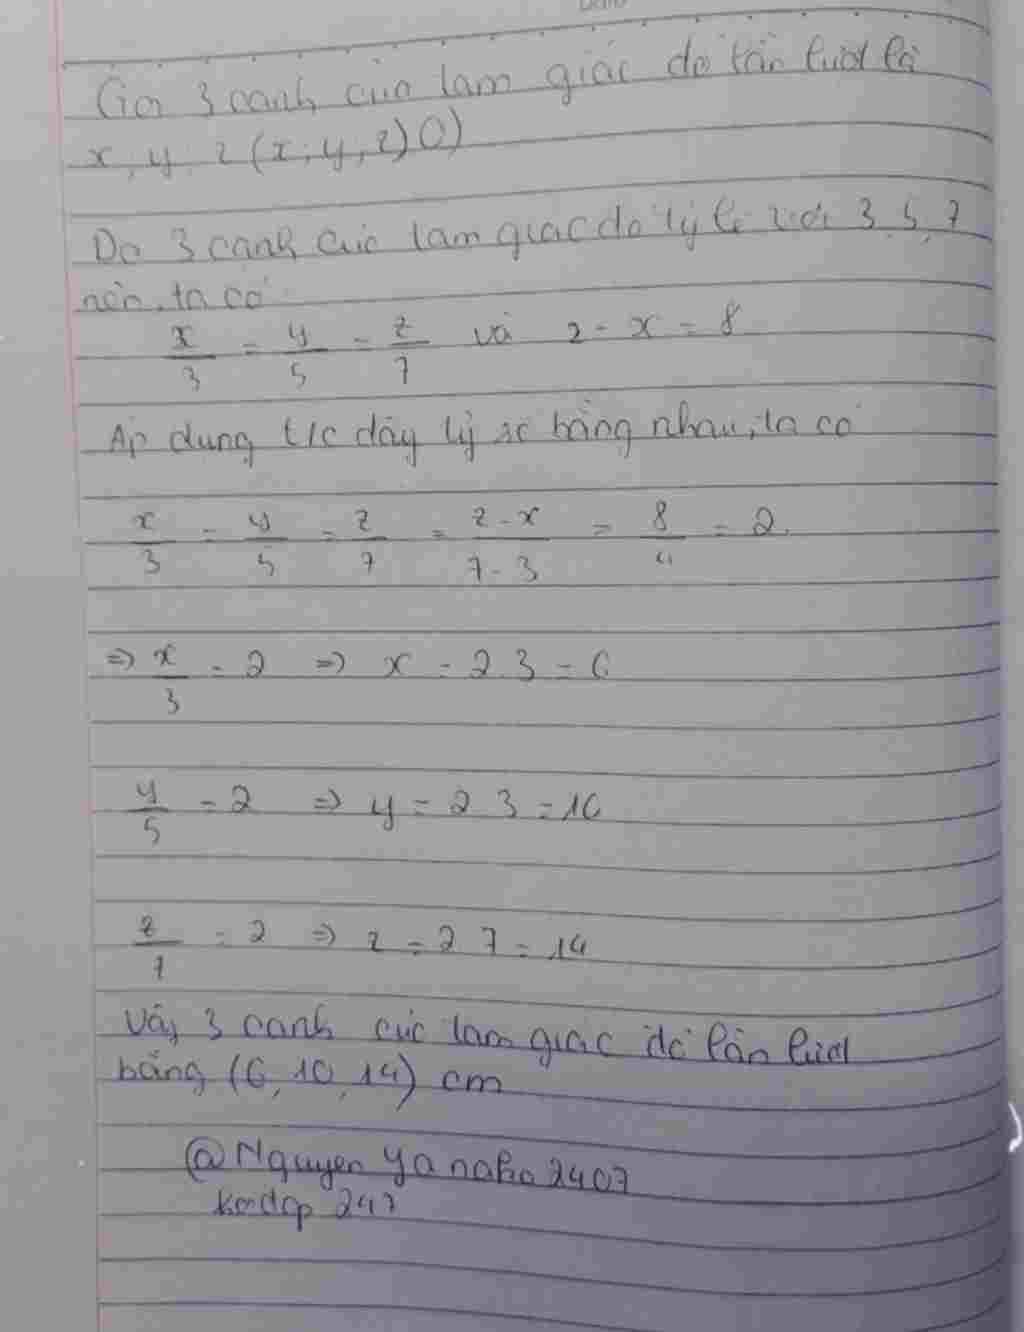 Gọi 3 cạnh của tam giác đó lần lượt là
x, y, z (x, y, z > 0)
Do 3 cạnh của tam giác đó tỷ lệ với 3, 5, 7
nên ta có
x/3 = y/5 = z/7 và z - x = 8
Áp dụng t/c dãy tỷ số bằng nhau, ta có
x/3 = y/5 = z/7 = z - x/7 - 3 = 8/4 = 2
=> x/3 = 2 => x = 2.3 = 6
y/5 = 2 => y = 2.3 = 10
z/7 = 2 => z = 2.7 = 14
Vậy 3 cạnh của tam giác đó lần lượt
bằng (6, 10, 14) cm
@Nguyen Yanaho 2407
247